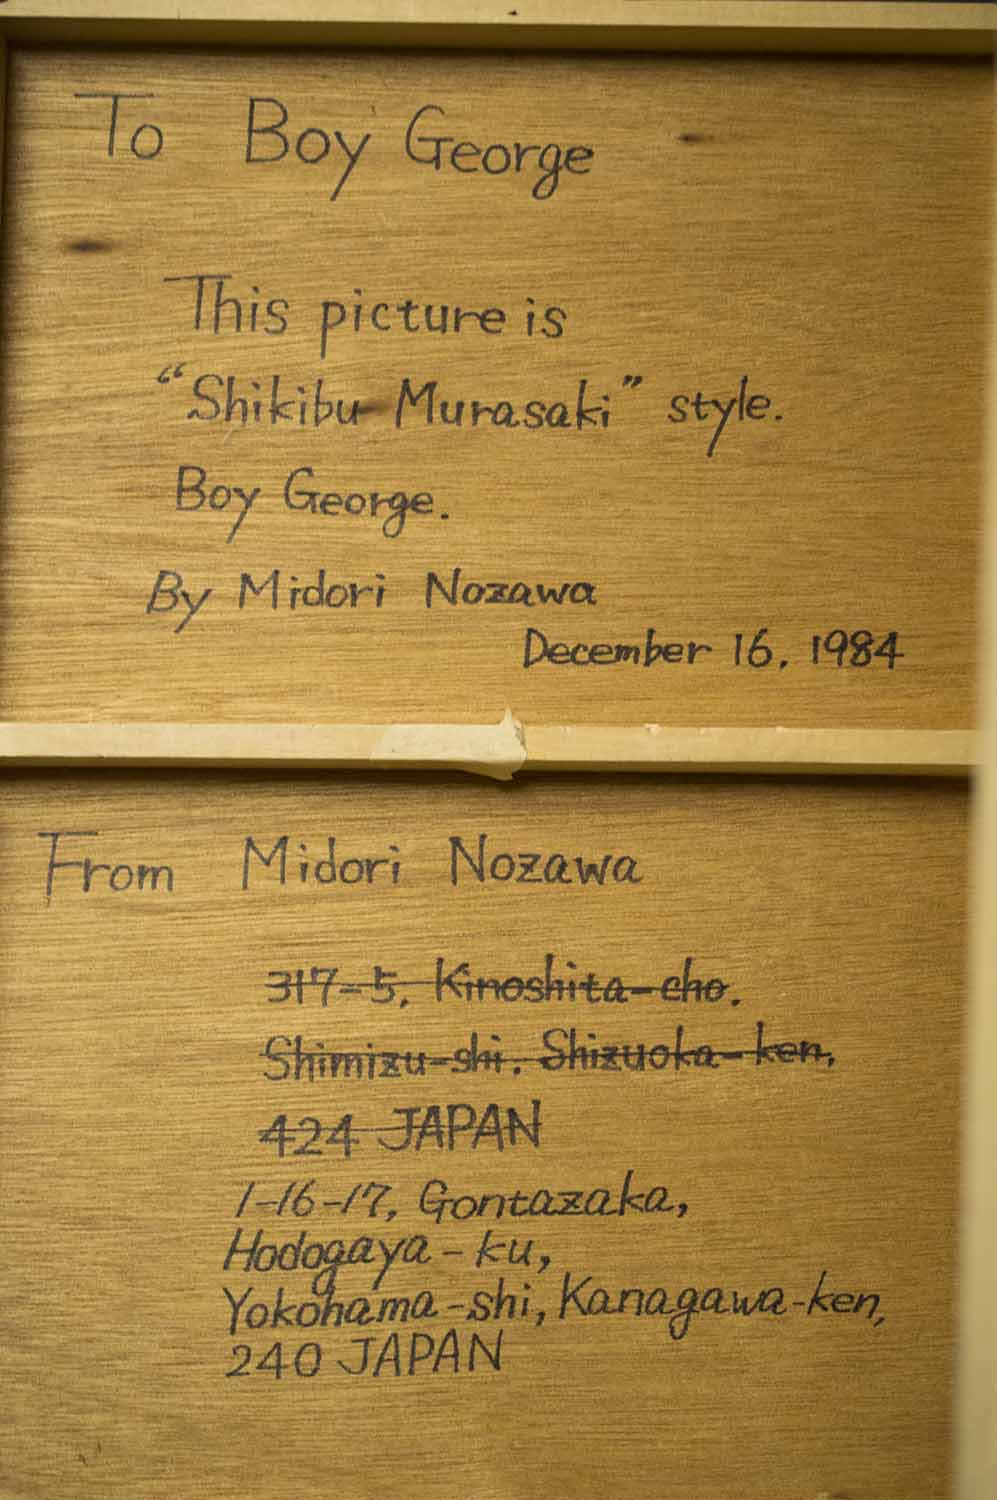 To Boy George
This picture is
“Shikibu Murasaki” style.
Boy George.
By Midori Nozawa
December 16, 1984
From Midori Nozawa
317-5, Kinoshita-cho.
Shimizu-shi, Shizuoka-ken,
424 JAPAN
1-16-17, Gontazaka,
Hodogaya-ku,
Yokohama-shi, Kanagawa-ken,
240 JAPAN